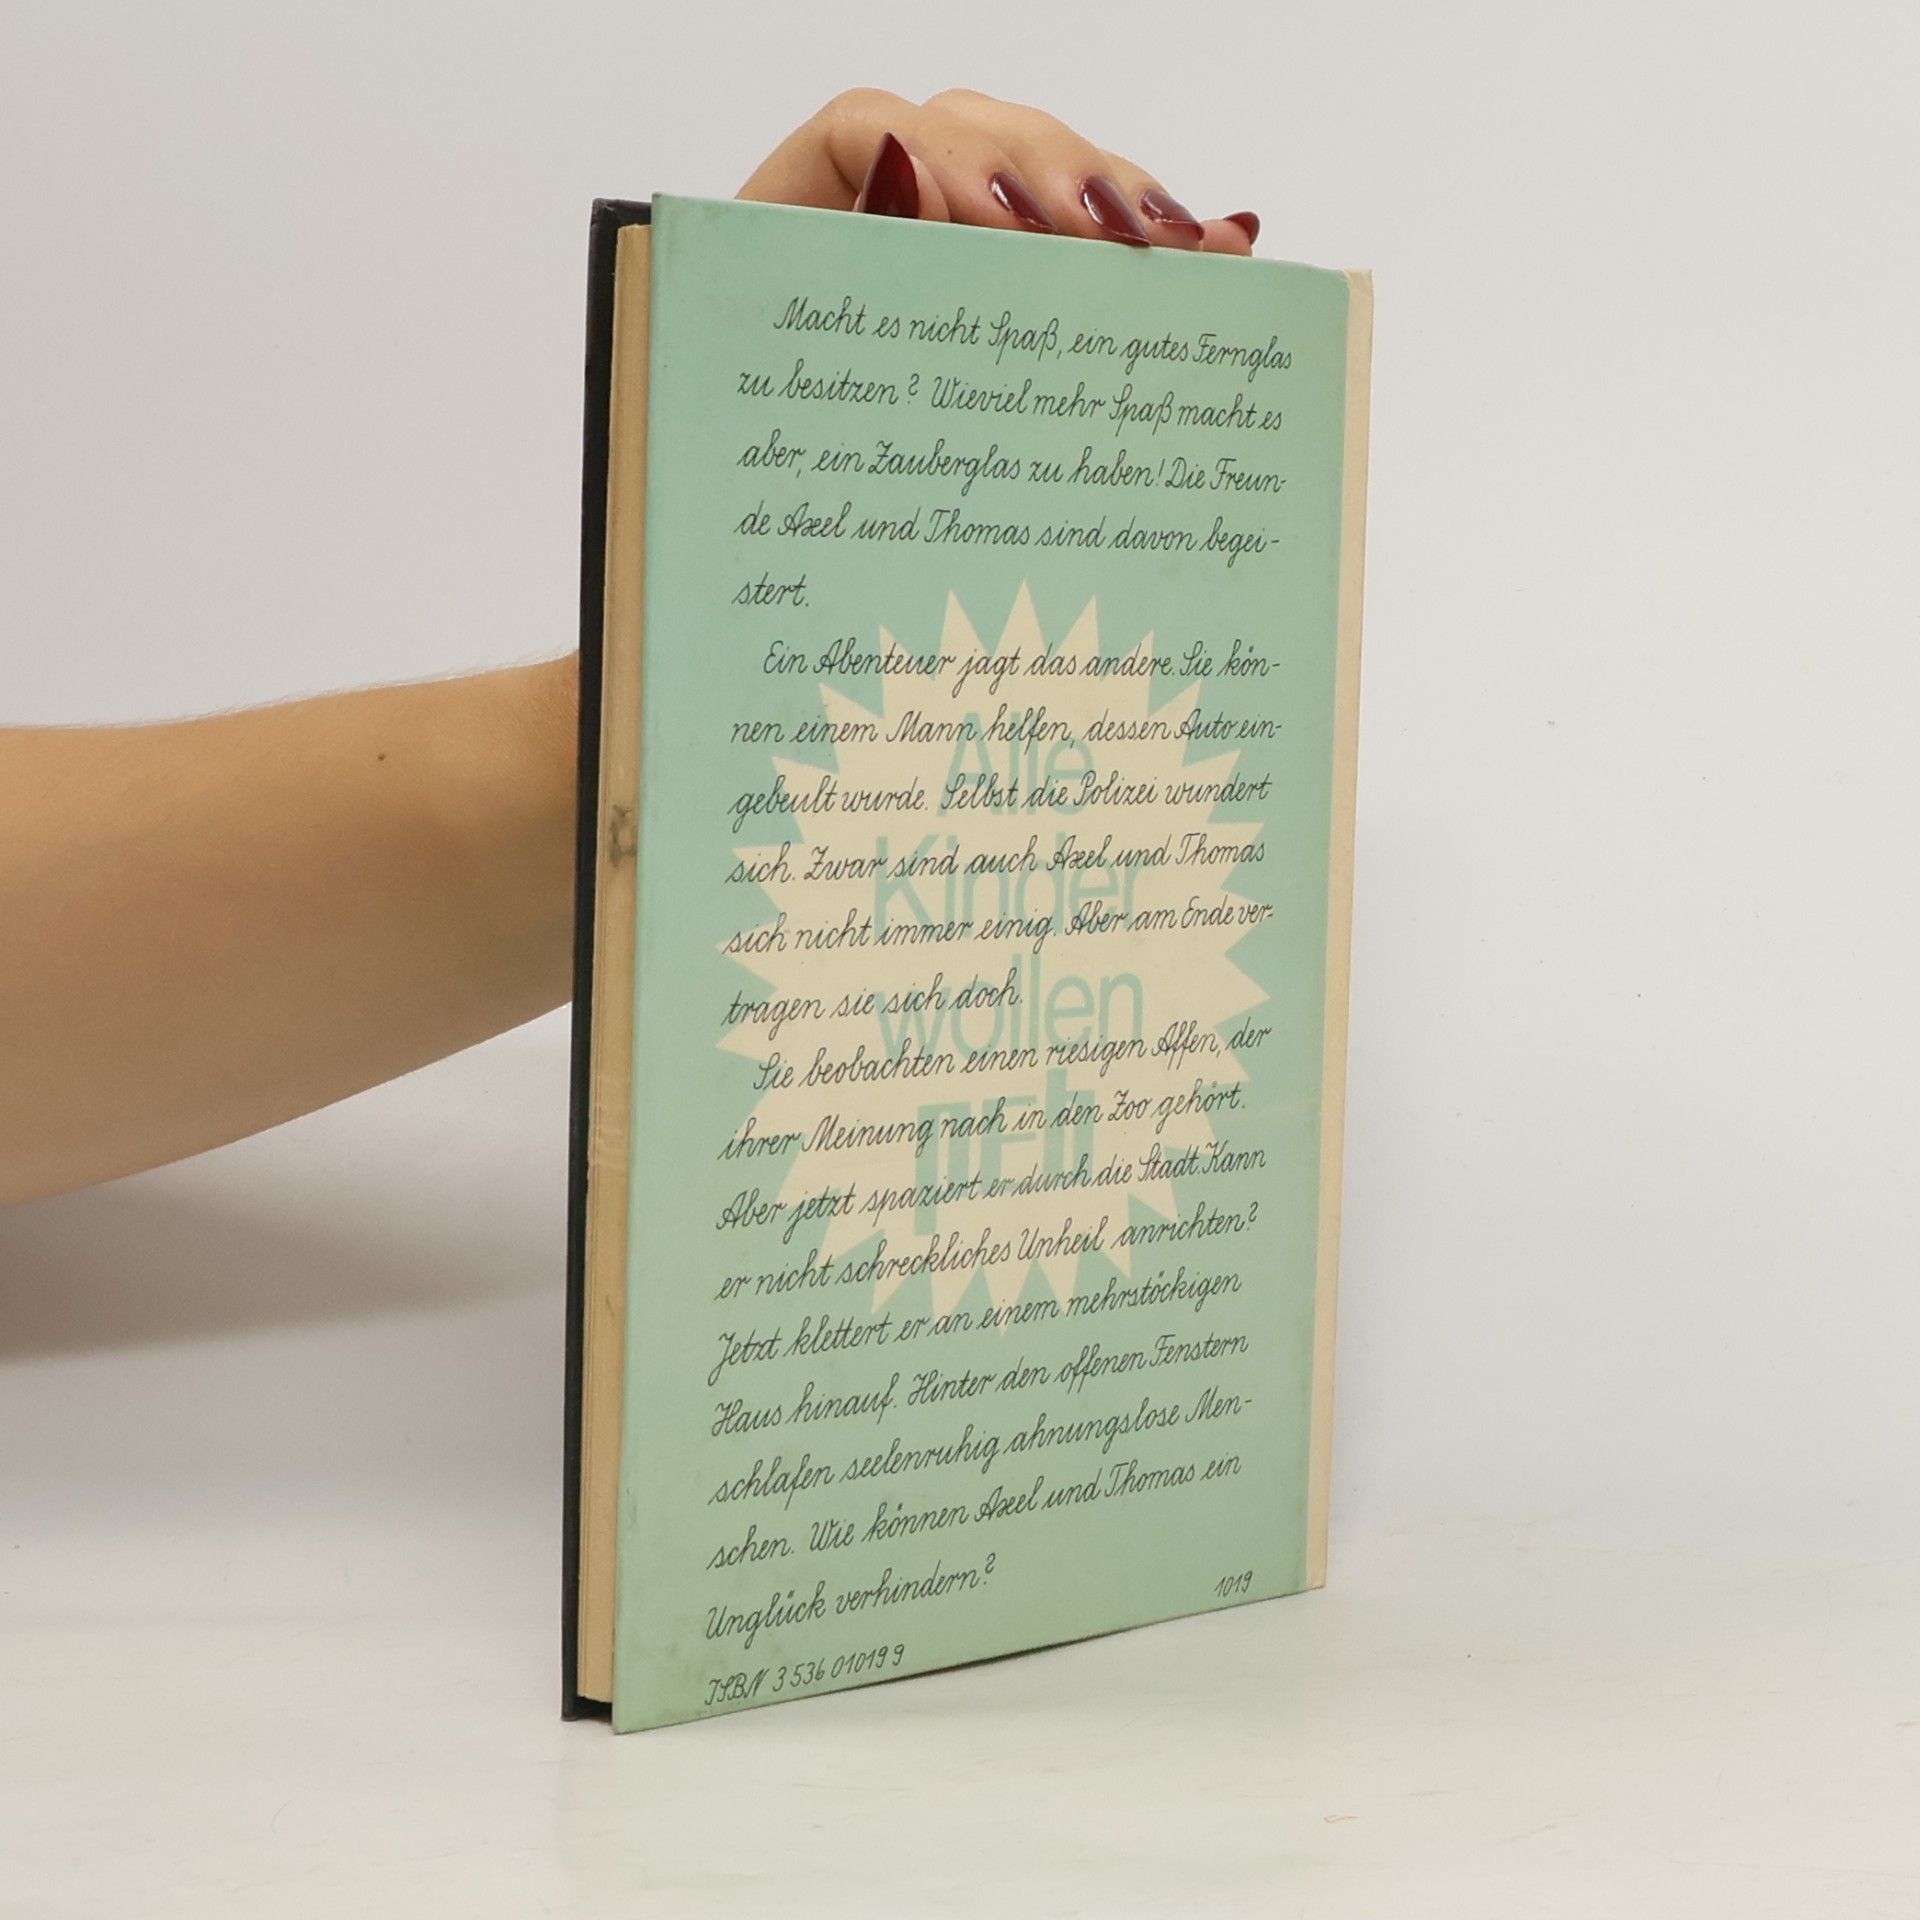 Macht es nicht Spaß, ein gutes Fernglas
zu besitzen? Wieviel mehr Spaß macht es
aber, ein Zauberglas zu haben! Die Freun-
de Axel und Thomas sind davon begei-
stert.
Ein Abenteuer jagt das andere. Sie kön-
nen einem Mann helfen, dessen Auto ein-
gebeult wurde. Selbst die Polizei wundert
sich. Zwar sind auch Axel und Thomas
sich nicht immer einig. Aber am Ende ver-
tragen sie sich doch.
Sie beobachten einen riesigen Affen, der
ihrer Meinung nach in den Zoo gehört.
Aber jetzt spaziert er durch die Stadt. Kann
er nicht schreckliches Unheil anrichten?
Jetzt klettert er an einem mehrstöckigen
Haus hinauf. Hinter den offenen Fenstern
schlafen seelenruhig ahnungslose Men-
schen. Wie können Axel und Thomas ein
Unglück verhindern?
1019
ISBN 3 536 01019 9
Alle
Kinder
wollen